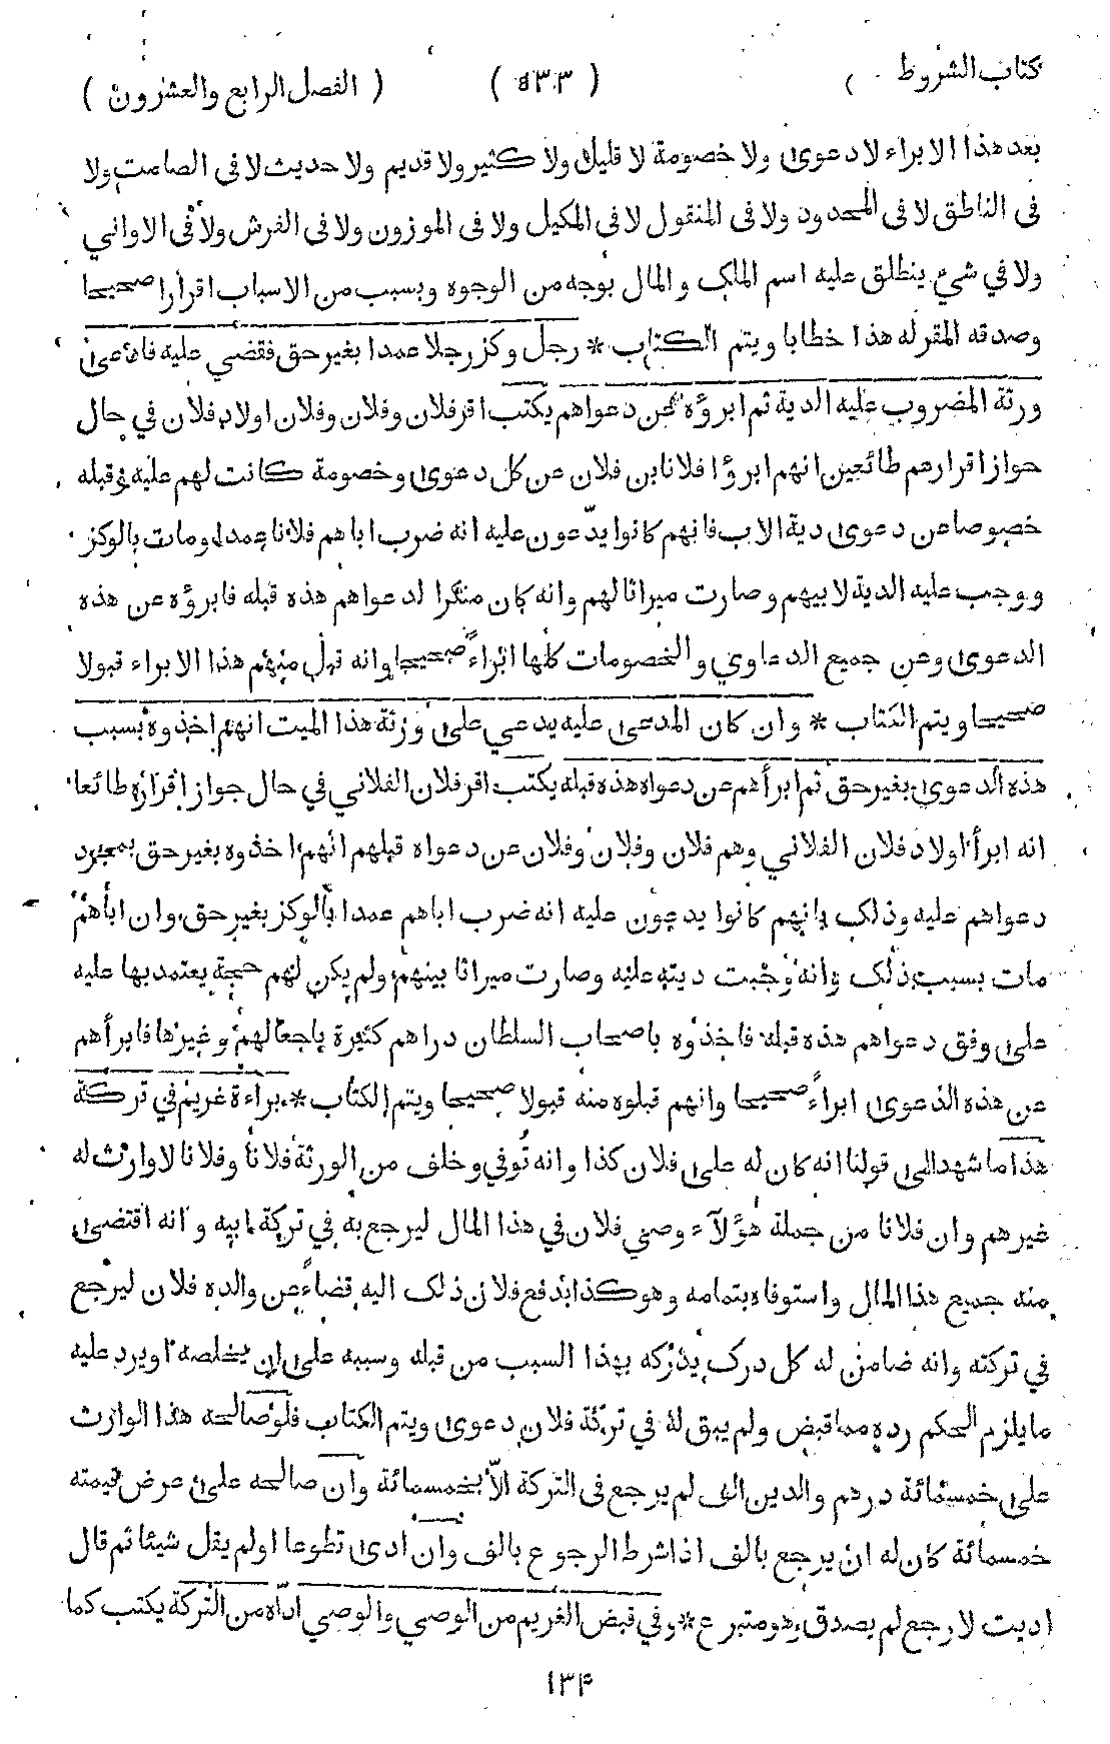 كتاب الشروط ( ٥٣٣ ) ( الفصل الرابع والعشرون )
بعد هذا الابراء لا دعوى ولا خصومة لا قليل ولا كثير ولا قديم ولا حديث لا في الصامت ولا
في الناطق لا في المحدود ولا في المنقول لا في المكيل ولا في الموزون ولا في الفرش ولا في الاواني
ولا في شيء ينطلق عليه اسم الملك والمال بوجه من الوجوه وبسبب من الاسباب اقرارا صحيحا
وصدقه المقر له هذا خطابا ويتم الكتاب * رجل وكز رجلا عمدا بغير حق فقضي عليه فادعى
ورثة المضروب عليه الدية ثم ابرؤه عن دعواهم يكتب اقر فلان وفلان وفلان اولاد فلان في حال
جواز اقرارهم طائعين انهم ابرؤا فلانا بن فلان عن كل دعوى وخصومة كانت لهم عليه وقبله
خصوصا عن دعوى دية الاب فانهم كانوا يدّعون عليه انه ضرب اباهم فلانا عمدا ومات بالوكز
ووجب عليه الدية لابيهم وصارت ميراثا لهم وانه كان منكرا لدعواهم هذه قبله فابرؤه عن هذه
الدعوى وعن جميع الدعاوي والخصومات كلها ابراءً صحيحا وانه قبل منهم هذا الابراء قبولا
صحيحا ويتم الكتاب * وان كان المدعى عليه يدعي على ورثة هذا الميت انهم اخذوه بسبب
هذه الدعوى بغير حق ثم ابرأهم عن دعواه هذه قبله يكتب اقر فلان الفلاني في حال جواز اقراره طائعا
انه ابرأ اولاد فلان الفلاني وهم فلان وفلان وفلان عن دعواه قبلهم انهم اخذوه بغير حق بمجرد
دعواهم عليه وذلك بانهم كانوا يدعون عليه انه ضرب اباهم عمدا بالوكز بغير حق وان اباهم
مات بسبب ذلك وانه وجبت ديته عليه وصارت ميراثا بينهم ولم يكن لهم حجة يعتمد بها عليه
على وفق دعواهم هذه قبله فاخذوه باصحاب السلطان دراهم كثيرة باجعالهم وغيرها فابرأهم
عن هذه الدعوى ابراءً صحيحا وانهم قبلوه منه قبولا صحيحا ويتم الكتاب * براءة غريم في تركة
هذا ما شهد الى قولنا انه كان له على فلان كذا وانه تُوفي وخلف من الورثة فلانا وفلانا لا وارث له
غيرهم وان فلانا من جملة هؤلآء وصي فلان في هذا المال ليرجع به في تركة ابيه وانه اقتضى
منه جميع هذا المال واستوفاه بتمامه وهو كذا بدفع فلان ذلك اليه قضاءً عن والده فلان ليرجع
في تركته وانه ضامن له كل درك يدركه بهذا السبب من قبله وسببه على ان يخلصه او يرد عليه
ما يلزم الحكم رده مما قبض ولم يبق له في تركة فلان دعوى ويتم الكتاب فلو صالحه هذا الوارث
على خمسمائة درهم والدين الف لم يرجع في التركة الاّ بخمسمائة وان صالحه على عرض قيمته
خمسمائة كان له ان يرجع بالف اذا شرط الرجوع بالف وان ادى تطوعا او لم يقل شيئا ثم قال
اديت لارجع لم يصدق وهو متبرع * وفي قبض الغريم من الوصي والوصي اداه من التركة يكتب كما
١٣۴